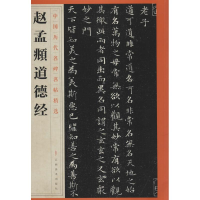 赵孟頫道德经
老子
道可道非常道名可名非常名無名天地之始
有名萬物之母故常無欲以觀其妙常有欲以觀
其徼此兩者同出而異名同謂之玄玄之又玄衆
妙之門
天下皆知美之為美斯惡已皆知善之為善斯